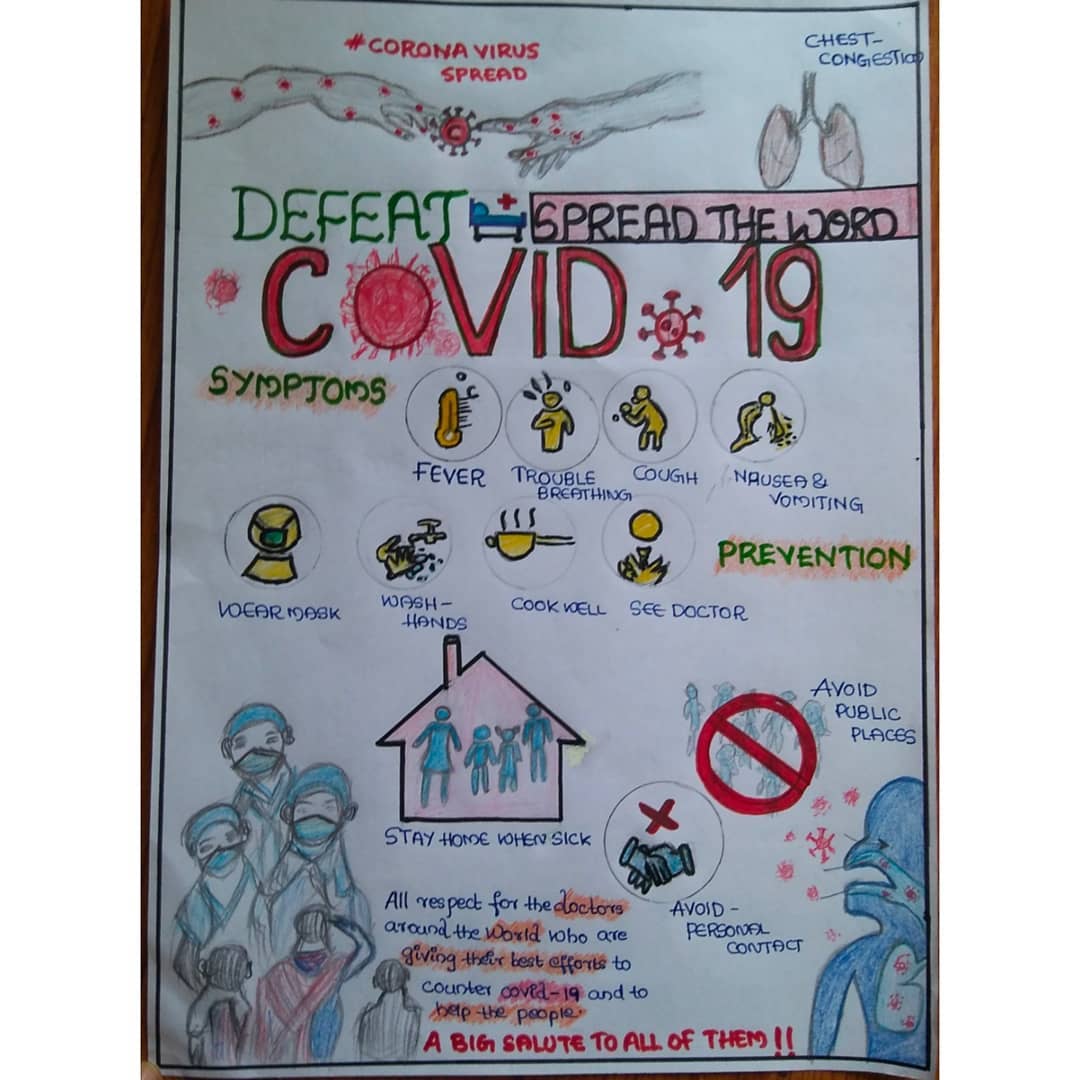 #CORONA VIRUS
SPREAD
CHEST-
CONGESTION
DEFEAT
SPREAD THE WORD
COVID 19
SYMPTOMS
FEVER
TROUBLE
BREATHING
COUGH
NAUSEA &
VOMITING
PREVENTION
WEAR MASK
WASH-
HANDS
COOK WELL
SEE DOCTOR
STAY HOME WHEN SICK
AVOID
PUBLIC
PLACES
AVOID -
PERSONAL
CONTACT
All respect for the doctors
around the World who are
giving their best efforts to
counter covid-19 and to
help the people.
A BIG SALUTE TO ALL OF THEM !!